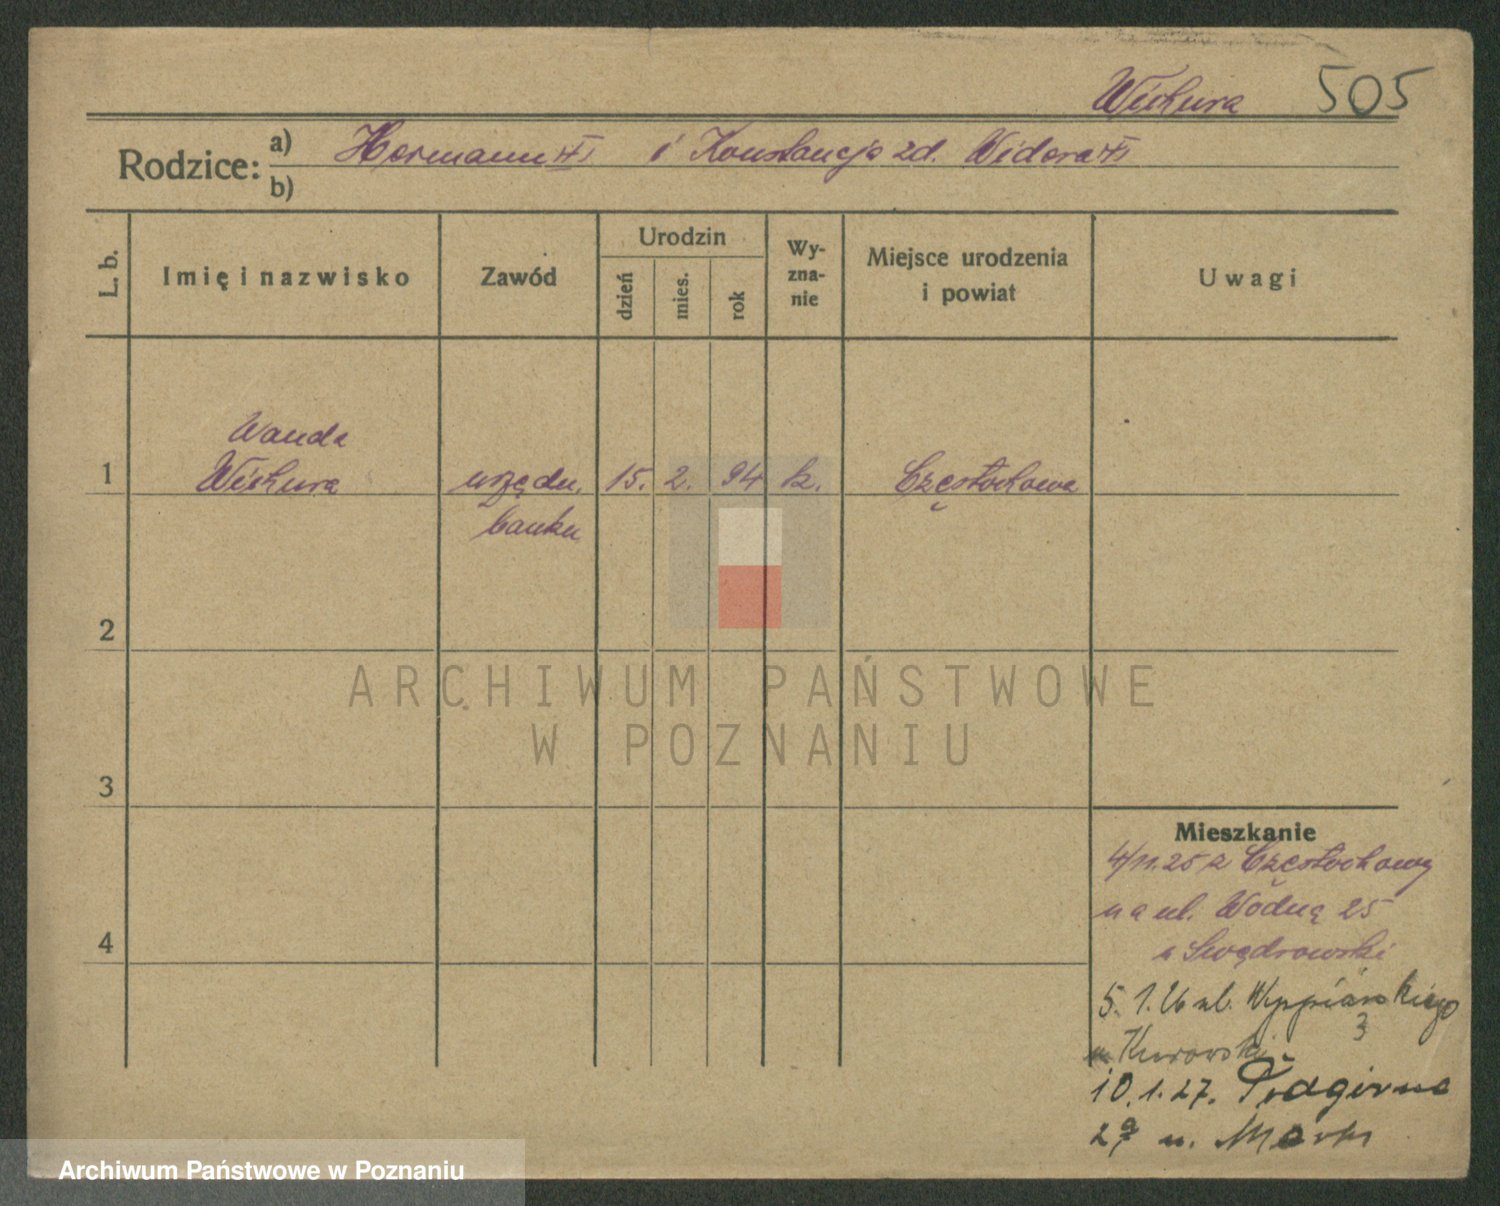 Wichura 505
Rodzice: a) Hermann i Konstancja zd. Widera
b)
L. b. Imię i nazwisko Zawód Urodzin dzień mies. rok Wy-zna-nie Miejsce urodzenia i powiat Uwagi
Wanda
1 Wichura urzędn. 15. 2. 94 k. Częstochowa
banku
2
ARCHIWUM PAŃSTWOWE
W POZNANIU
3
Mieszkanie
4/11.25 z Częstochowy
na ul. Wodną 25
4 u Swędrowski
5.1.26 ul. Wyspiańskiego
3
u Kurowski
10.1.27. Podgórna
2a u.
Archiwum Państwowe w Poznaniu